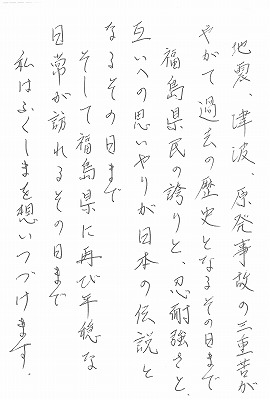 地震、津波、原発事故の三重苦が
やがて過去の歴史となるその日まで
福島県民の誇りと、忍耐強さと、
互いへの思いやりが日本の伝説と
なるその日まで
そして福島県に再び平穏な
日常が訪れるその日まで
私はふくしまを想いつづけます.